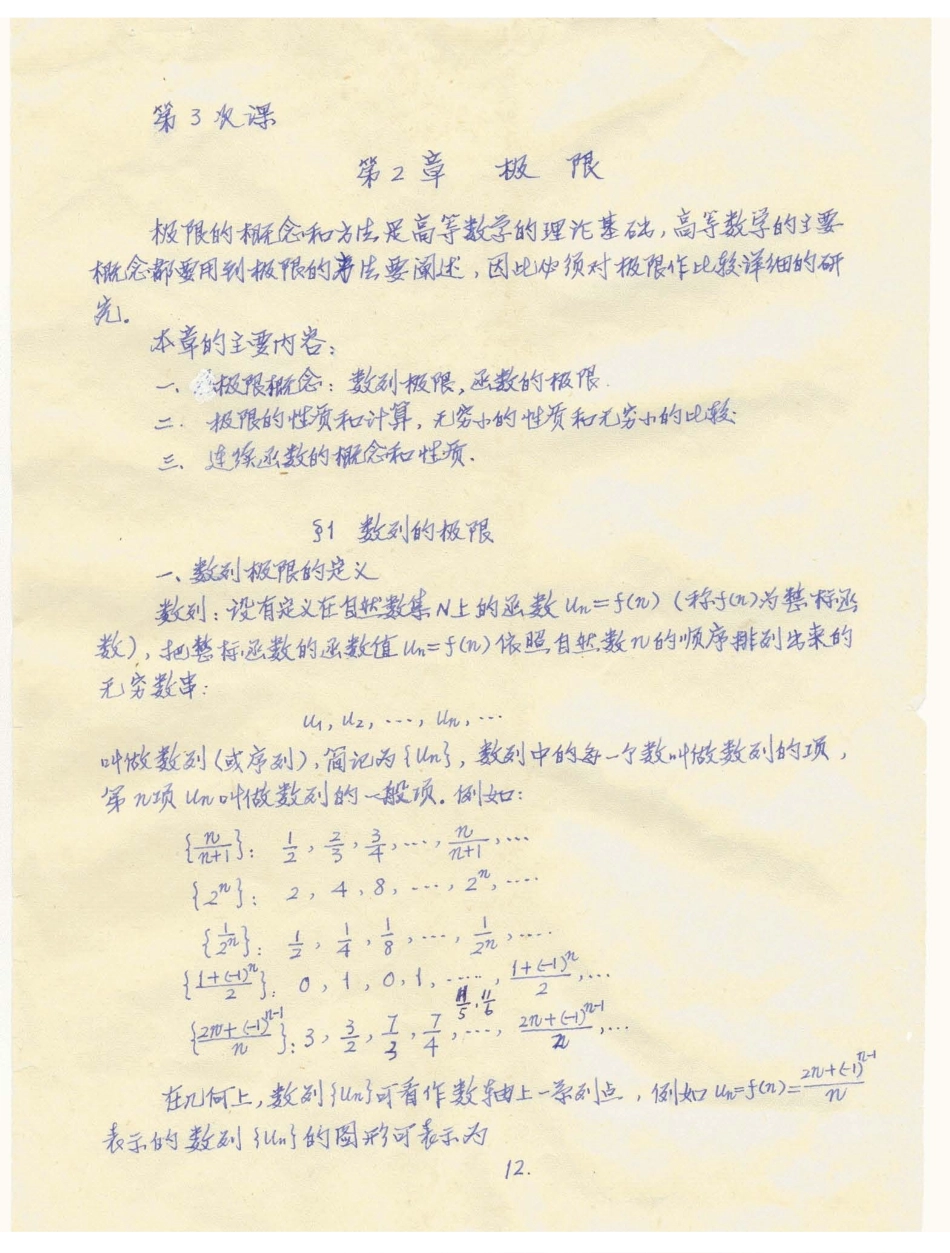 第3次课
第2章 极限
极限的概念和方法是高等数学的理论基础,高等数学的主要
概念都要用到极限的方法要阐述,因此必须对极限作比较详细的研
究。
本章的主要内容:
一、极限概念:数列极限,函数的极限.
二. 极限的性质和计算,无穷小的性质和无穷小的比较
三、连续函数的概念和性质.
§1 数列的极限
一、数列极限的定义
数列:设有定义在自然数集N上的函数 Un=f(n) (称f(n)为整标函
数),把整标函数的函数值 Un=f(n)依照自然数n的顺序排列出来的
无穷数串:
u₁, u₂, …, uₙ, …
叫做数列(或序列),简记为{Un},数列中的每一个数叫做数列的项,
第n项 Un叫做数列的一般项.例如:
{n/(n+1)}: 1/2, 2/3, 3/4, …, n/(n+1), …
{2ⁿ}: 2, 4, 8, …, 2ⁿ, …
{1/2ⁿ}: 1/2, 1/4, 1/8, …, 1/2ⁿ, …
{(1+(-1)ⁿ)/2}: 0, 1, 0, 1, …, (1+(-1)ⁿ)/2, …
{(2n+(-1)ⁿ⁻¹)/n}: 3, 3/2, 7/3, 7/4, 11/5, 11/6, …, (2n+(-1)ⁿ⁻¹)/n, …
在几何上,数列{Un}可看作数轴上一系列点,例如 Un=f(n)=(2n+(-1)ⁿ⁻¹)/n
表示的数列{Un}的图形可表示为
12.